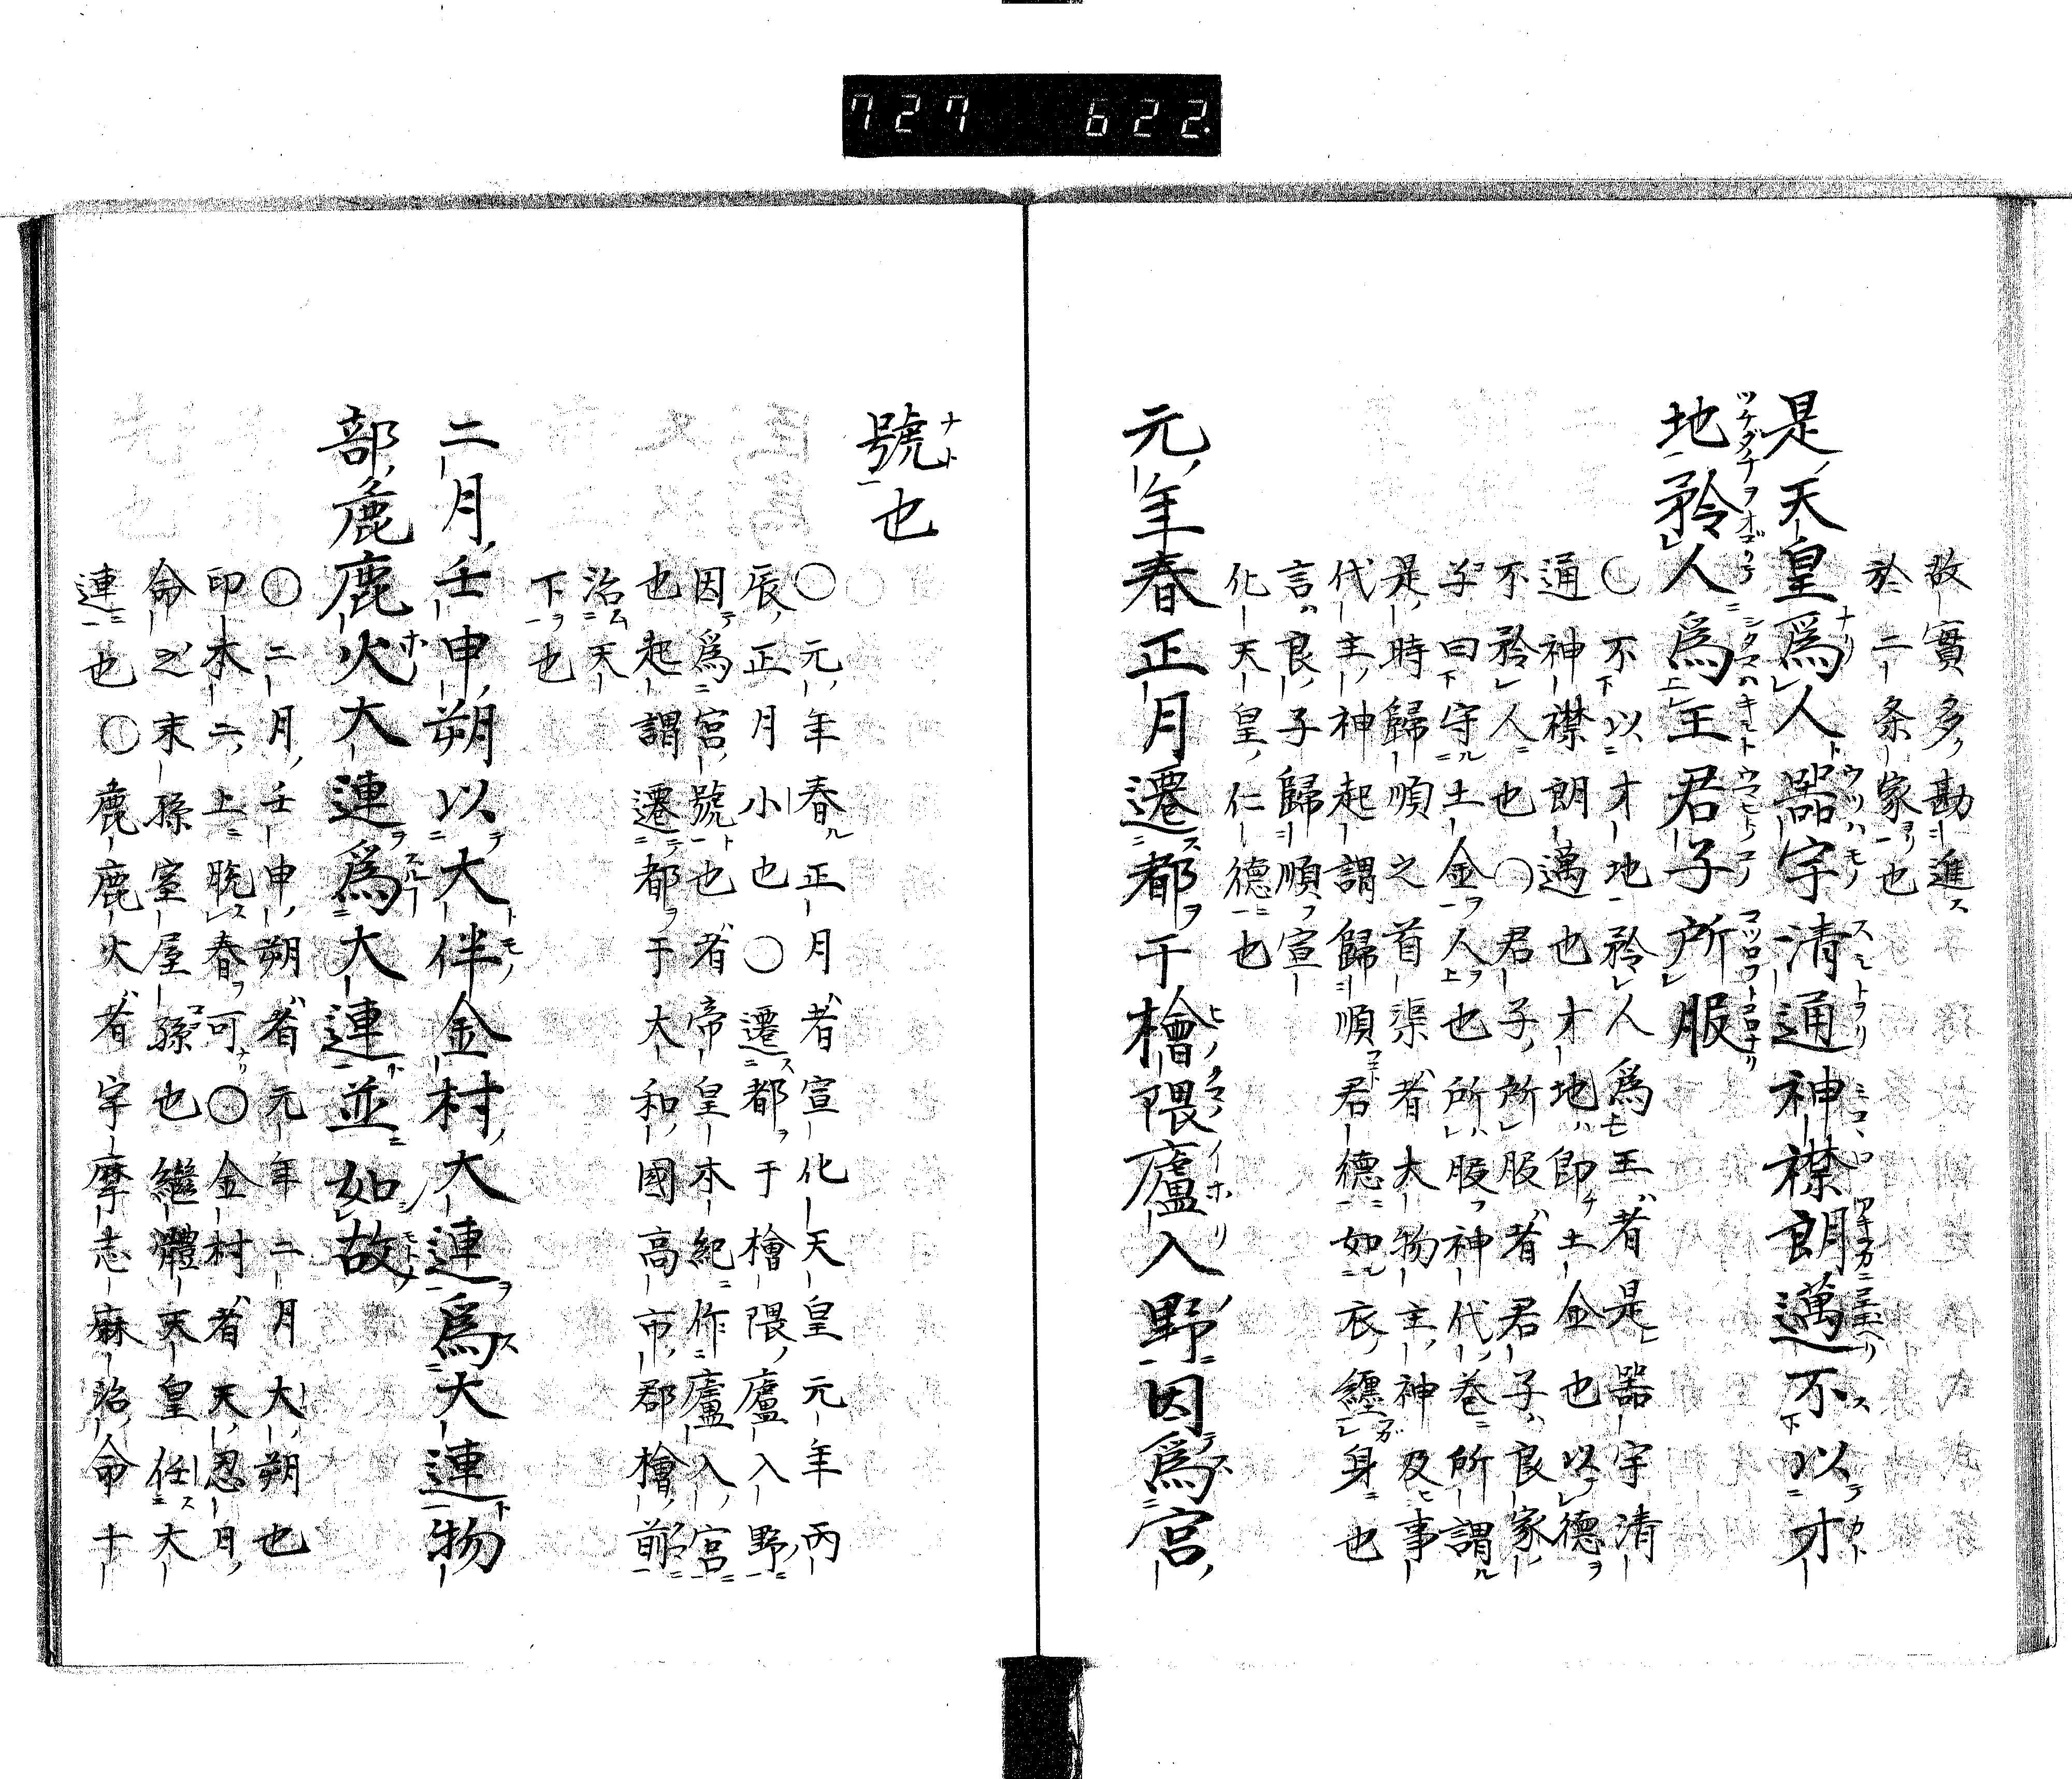 727 622.
故實多勘進
於二条家也
是天皇爲人器宇清通神襟朗邁不以才
地矜人爲王君子所服
○不以才地矜人爲王者是器宇清
通神襟朗邁也才地即土金也以德
不矜人也○君子所服者君子良家
子曰守土金人也所服神代巻所謂
是時歸順之首渠者大物主神及事
代主神起謂歸順君德如衣纏身也
言良子歸順宣
化天皇仁德也
元年春正月遷都于檜隈廬入野因爲宮
號也
○元年春正月者宣化天皇元年丙
辰正月小也○遷都于檜隈廬入野
因爲宮號也者帝皇本紀作廬入宮
也起謂遷都于大和國高市郡檜前
治天
下也
二月壬申朔以大伴金村大連爲大連物
部麁鹿火大連爲大連並如故
○二月壬申朔者元年二月大朔也
印本二上脱春可○金村者天忍日
命之末孫室屋孫也繼體天皇任大
連也○麁鹿火者宇摩志麻治命十